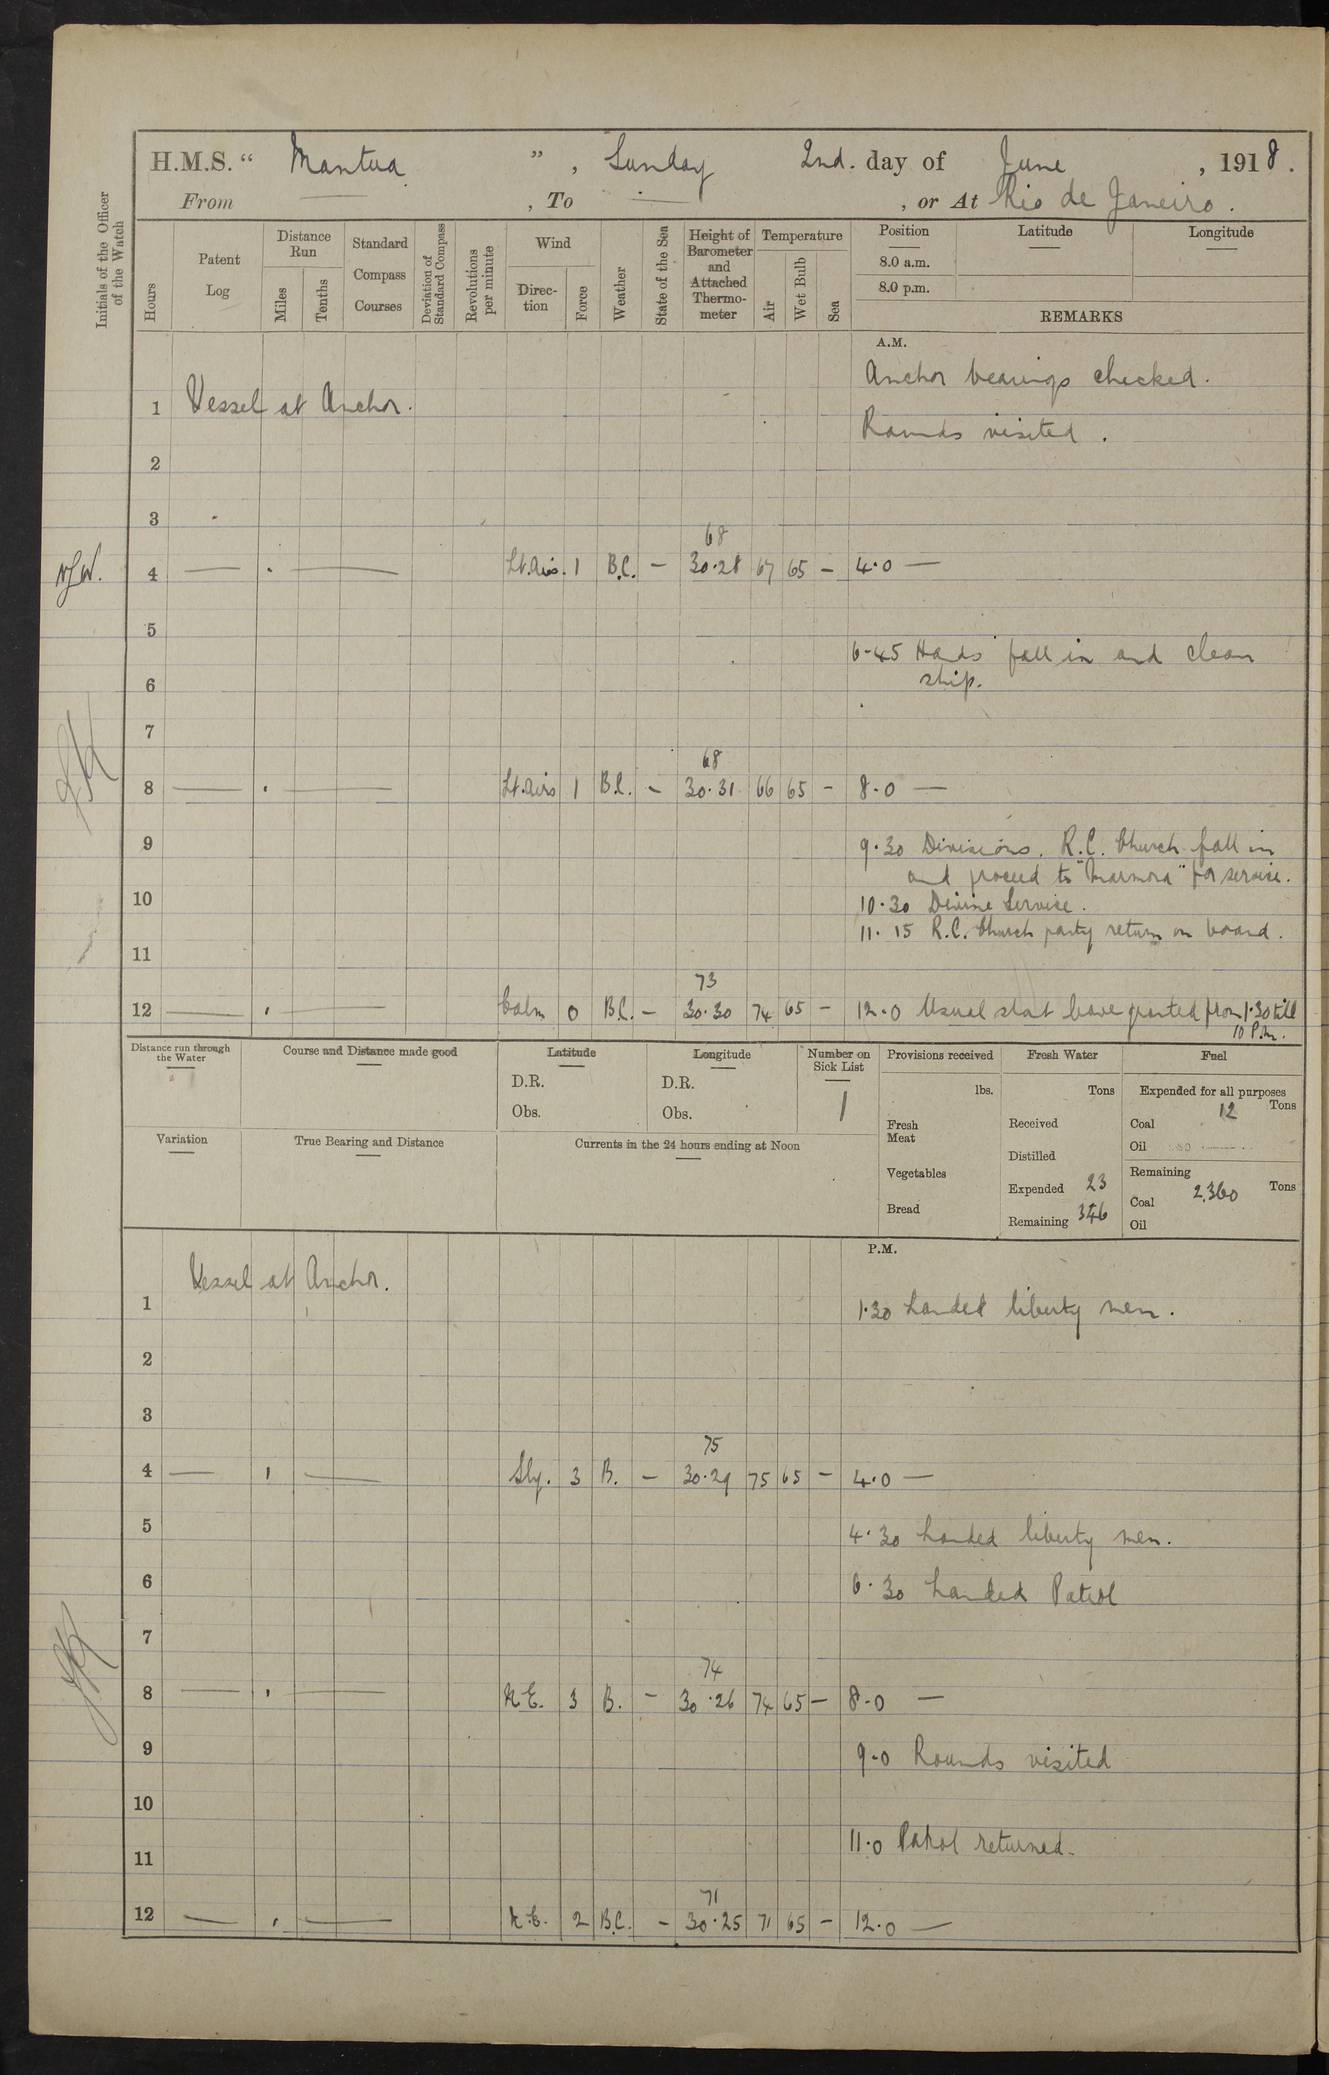 H.M.S. " Mantua ", Sunday 2nd. day of June , 1918.
From — , To — , or At Rio de Janeiro.
Initials of the Officer of the Watch
Hours
Patent Log
Distance Run
Miles
Tenths
Standard Compass Courses
Deviation of Standard Compass
Revolutions per minute
Wind
Direction
Force
Weather
State of the Sea
Height of Barometer and Attached Thermometer
Temperature
Air
Wet Bulb
Sea
Position
8.0 a.m.
8.0 p.m.
Latitude
Longitude
REMARKS
A.M.
Anchor bearings checked.
1 Vessel at Anchor.
Rounds visited.
2
3
68
4 — . — Lt. Airs. 1 B.C. — 30.28 67 65 — 4.0 —
5
6-45 Hands fall in and clean
ship.
6
7
68
8 — . — Lt. Airs 1 B.C. — 30.31 66 65 — 8.0 —
9
9.30 Divisions. R.C. Church fall in
and proceed to "Marmora" for service.
10
10.30 Divine Service.
11.15 R.C. Church party return on board.
11
73
12 — . — Calm 0 B.C. — 30.30 74 65 — 12.0 Usual short leave granted from 1.30 till
10 P.m.
Distance run through the Water
Course and Distance made good
Latitude
D.R.
Obs.
Longitude
D.R.
Obs.
Number on Sick List
1
Provisions received
lbs.
Fresh Meat
Vegetables
Bread
Fresh Water
Tons
Received
Distilled
Expended 23
Remaining 346
Fuel
Expended for all purposes
Tons
Coal 12
Oil
Remaining
Tons
Coal 2,360
Oil
Variation
True Bearing and Distance
Currents in the 24 hours ending at Noon
P.M.
Vessel at Anchor.
1
1.30 Landed liberty men.
2
3
75
4 — . — Sly. 3 B. — 30.29 75 65 — 4.0 —
5
4.30 Landed liberty men.
6
6.30 Landed Patrol
7
74
8 — . — N.E. 3 B. — 30.26 74 65 — 8.0 —
9
9.0 Rounds visited
10
11.0 Patrol returned.
11
71
12 — . — N.E. 2 B.C. — 30.25 71 65 — 12.0 —